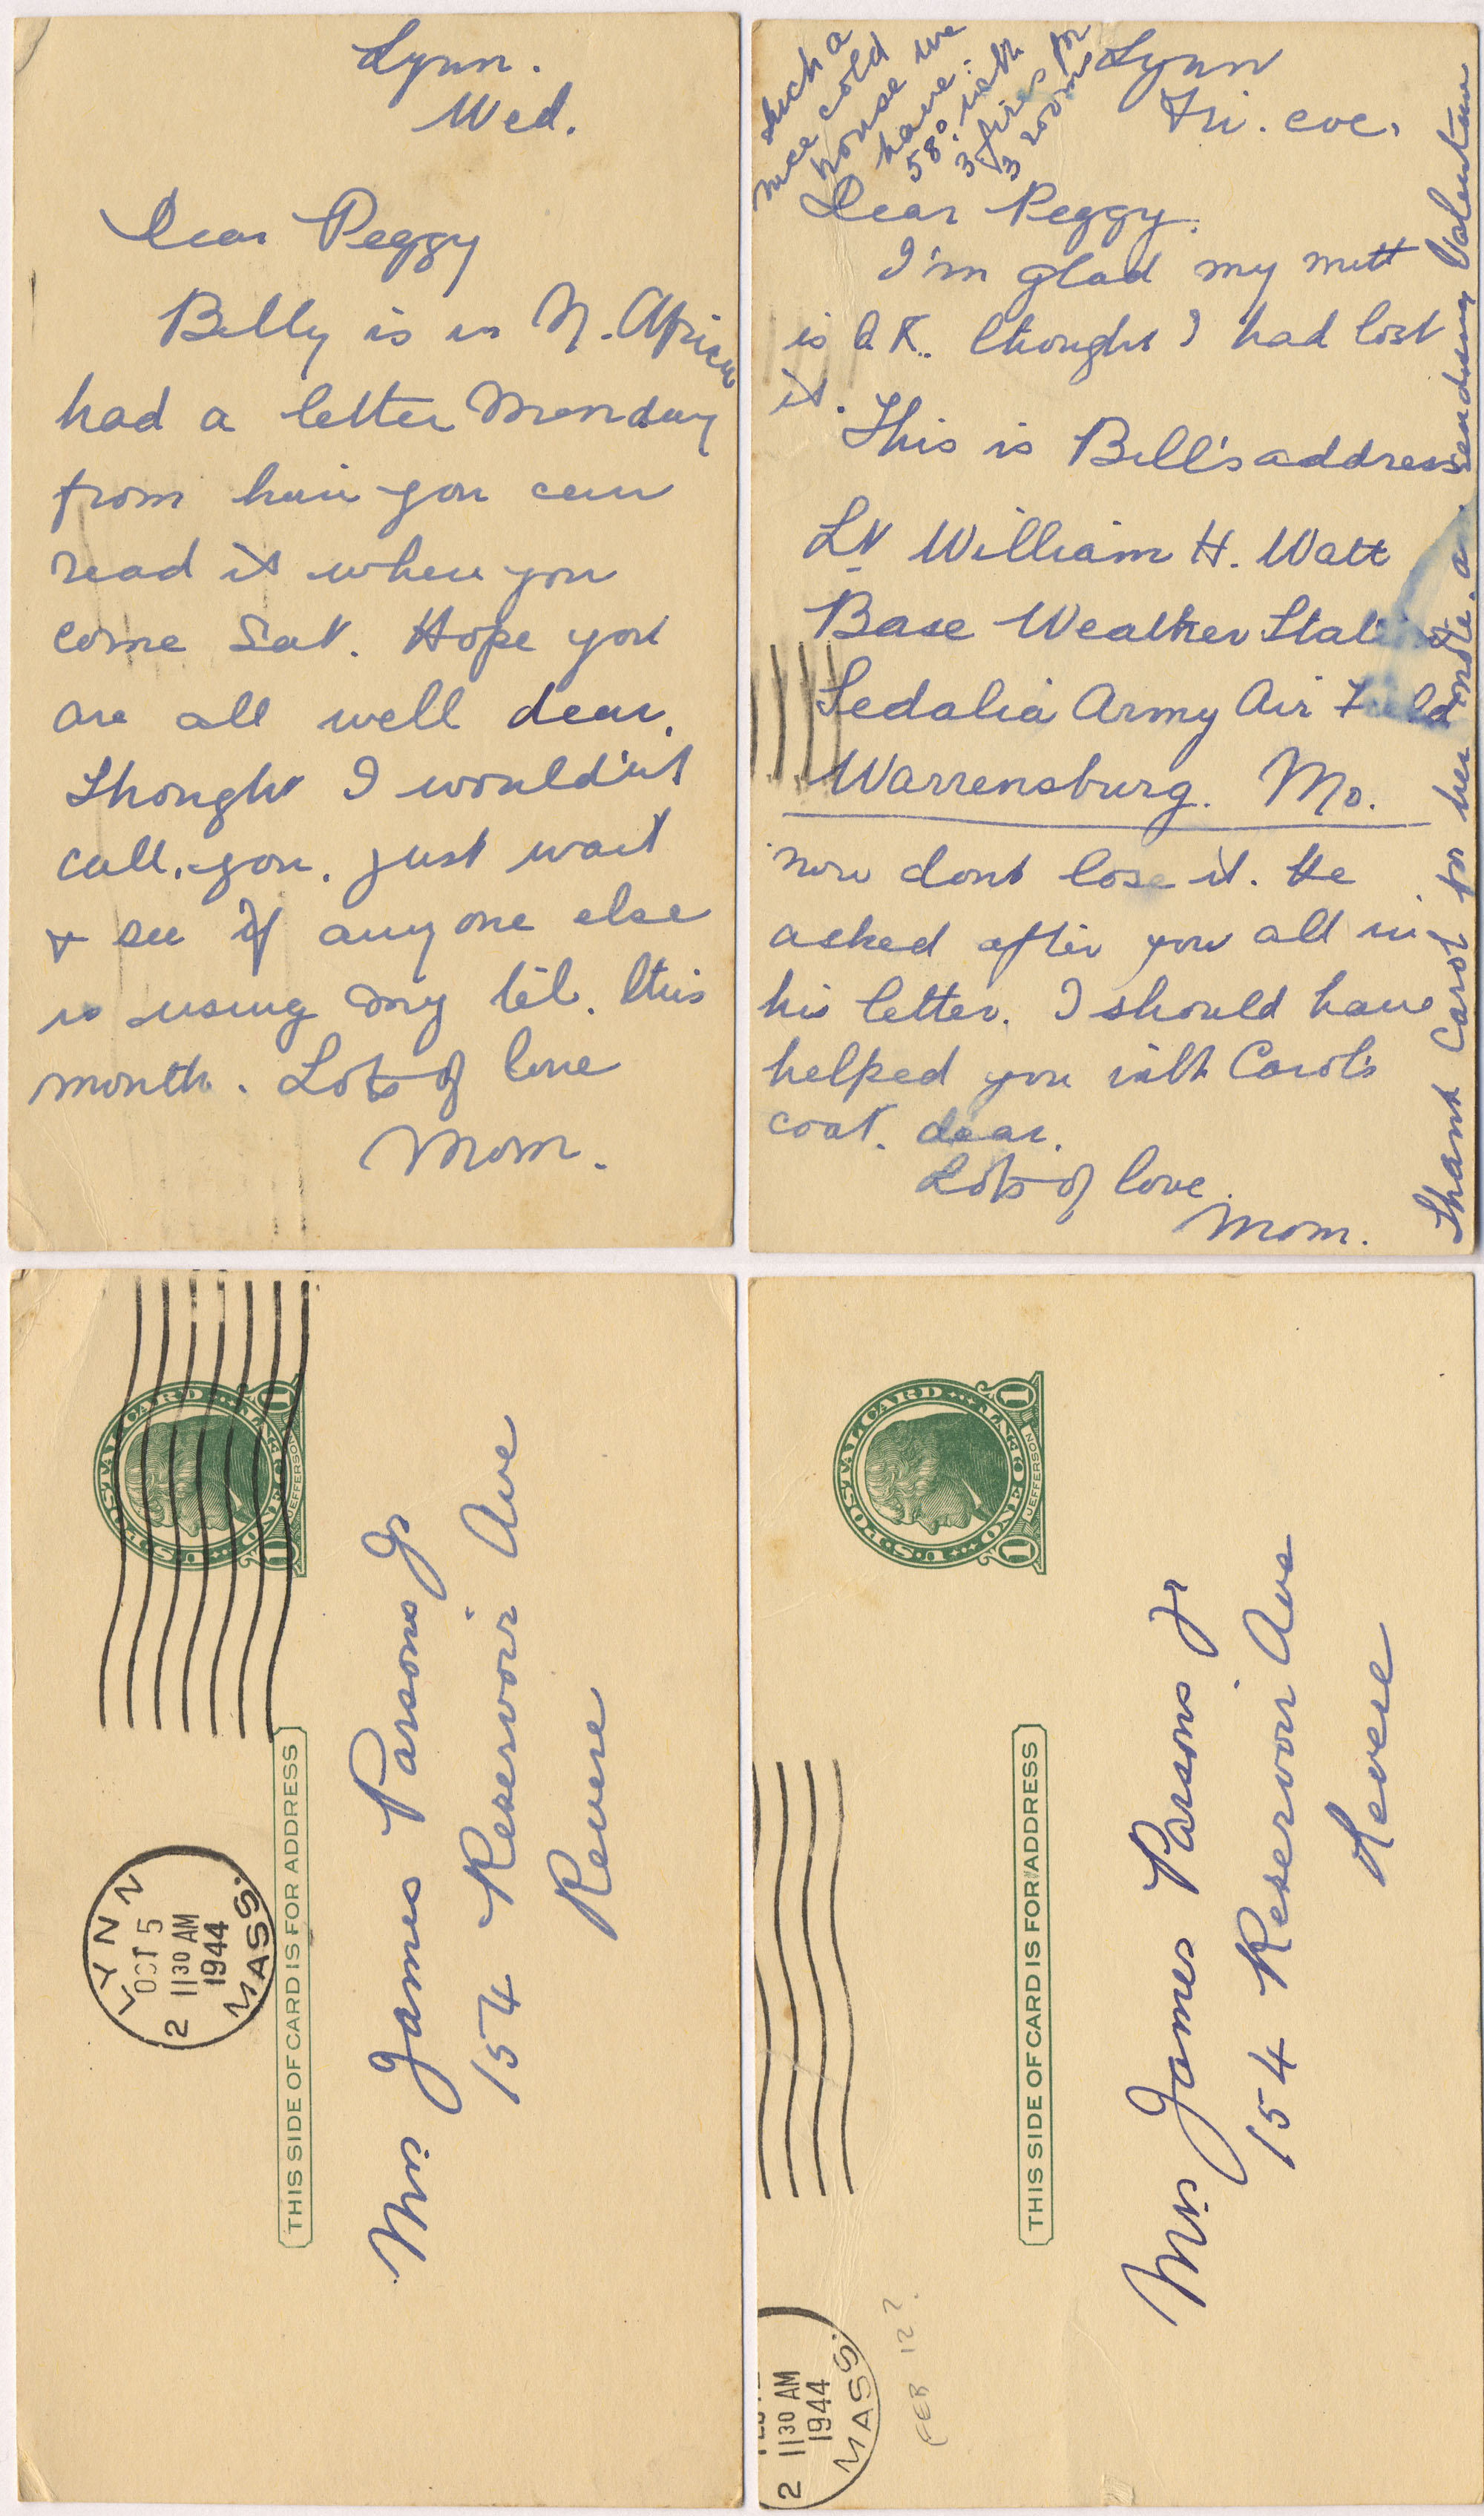 Lynn.
Wed.
Dear Peggy
Billy is in N. Africa
had a letter Monday
from him you can
read it when you
come Sat. Hope you
are all well dear.
Thought I would'nt
call. you. just wait
& see if anyone else
is using my tel. this
month. Lots of love
Mom.
such a
nice cold
house we
have:
58° with
3 fires for
3 rooms
Lynn
Fri. eve.
Dear Peggy.
I'm glad my mitt
is O.K. thought I had lost
it.
This is Bill's address
Lt William H. Watt
Base Weather Station
Sedalia Army Air Field
Warrensburg. Mo.
now dont lose it. He
asked after you all in
his letter. I should have
helped you with Carol's
coat. dear.
Lots of love.
Mom.
Thank Carol for her note. a sending Valentine
U.S. POSTAL CARD ONE CENT
1 JEFFERSON 1
THIS SIDE OF CARD IS FOR ADDRESS
LYNN
OCT 5
2 1130 AM
1944
MASS.
Mrs James Parsons Jr
154 Reservoir Ave
Revere
U.S. POSTAL CARD ONE CENT
1 JEFFERSON 1
THIS SIDE OF CARD IS FOR ADDRESS
2 1130 AM
1944
MASS.
FEB 12?
Mrs James Parsons Jr
154 Reservoir Ave
Revere